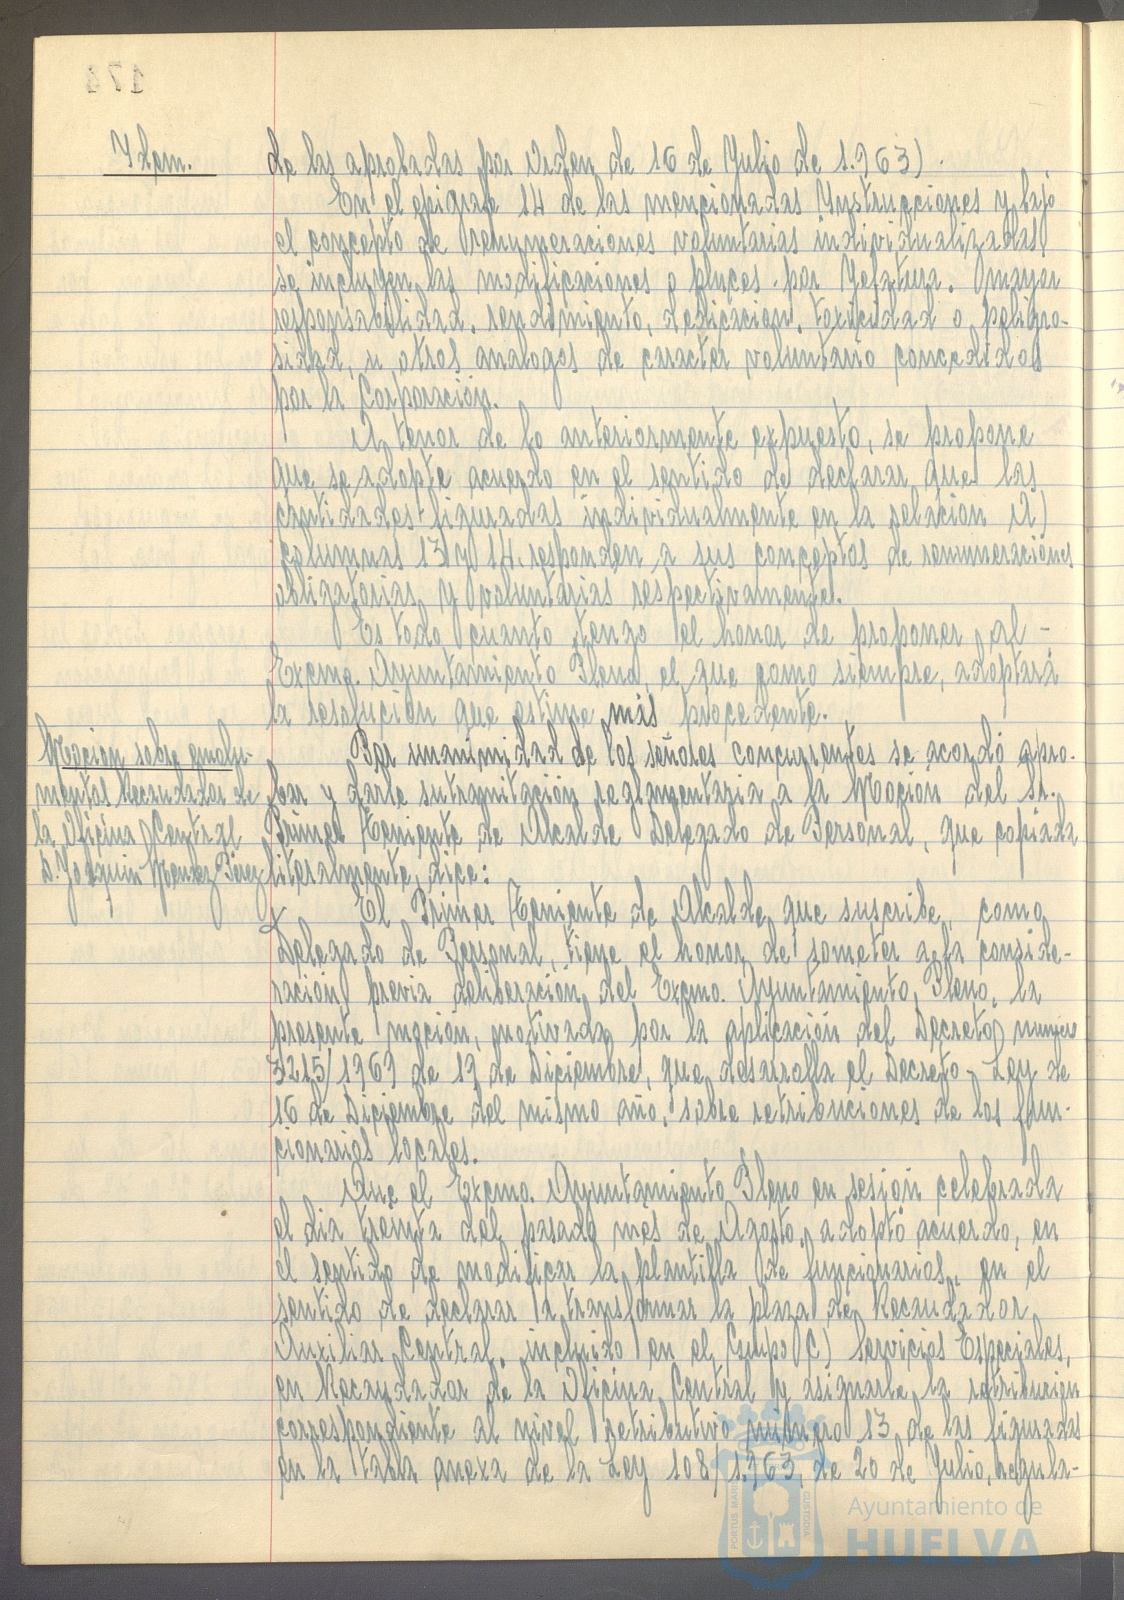 174
Idem.
de las aprobadas por Orden de 16 de Julio de 1.963).
En el epigrafe 14 de las mencionadas Instrucciones y bajo
el concepto de remuneraciones voluntarias individualizadas
se incluyen las modificaciones o pluses por Jefatura, mayor
responsabilidad, rendimiento, dedicacion, toxicidad o peligro-
sidad, u otros analogos de caracter voluntario concedidos
por la Corporación.
A tenor de lo anteriormente expuesto, se propone
que se adopte acuerdo en el sentido de declarar que las
cantidades figuradas individualmente en la relacion A)
columnas 13 y 14, responden a sus conceptos de remuneraciones
obligatorias y voluntarias respectivamente.
Es todo cuanto tengo el honor de proponer al
Excmo. Ayuntamiento Pleno, el que como siempre, adoptará
la resolución que estime más procedente.
Moción sobre emolu-
mentos Recaudador de
la Oficina Central
D. Joaquin Mendez Pérez
Por unanimidad de los señores concurrentes se acordó apro-
bar y darle sutramitación reglamentaria a la Moción del Sr.
Primer Teniente de Alcalde Delegado de Personal, que copiada
literalmente, dice:
El Primer Teniente de Alcalde que suscribe, como
Delegado de Personal, tiene el honor de someter a la conside-
ración previa deliberación, del Excmo. Ayuntamiento Pleno, la
presente moción, motivada por la aplicación del Decreto número
3215/1969 de 19 de Diciembre, que desarrolla el Decreto-Ley de
16 de Diciembre del mismo año, sobre retribuciones de los fun-
cionarios locales.
Que el Excmo. Ayuntamiento Pleno en sesión celebrada
el dia treinta del pasado mes de Agosto, adoptó acuerdo, en
el sentido de modificar la plantilla de funcionarios, en el
sentido de declarar a transformar la plaza de Recaudador
Auxiliar Central, incluido en el Grupo C) Servicios Especiales,
en Recaudador de la Oficina Central y asignarle la retribución
correspondiente al nivel retributivo número 13 de las figuradas
en la tabla anexa de la Ley 108/1.963, de 20 de Julio, regula-
PORTUS MARIS
CUSTODIA
Ayuntamiento de
HUELVA